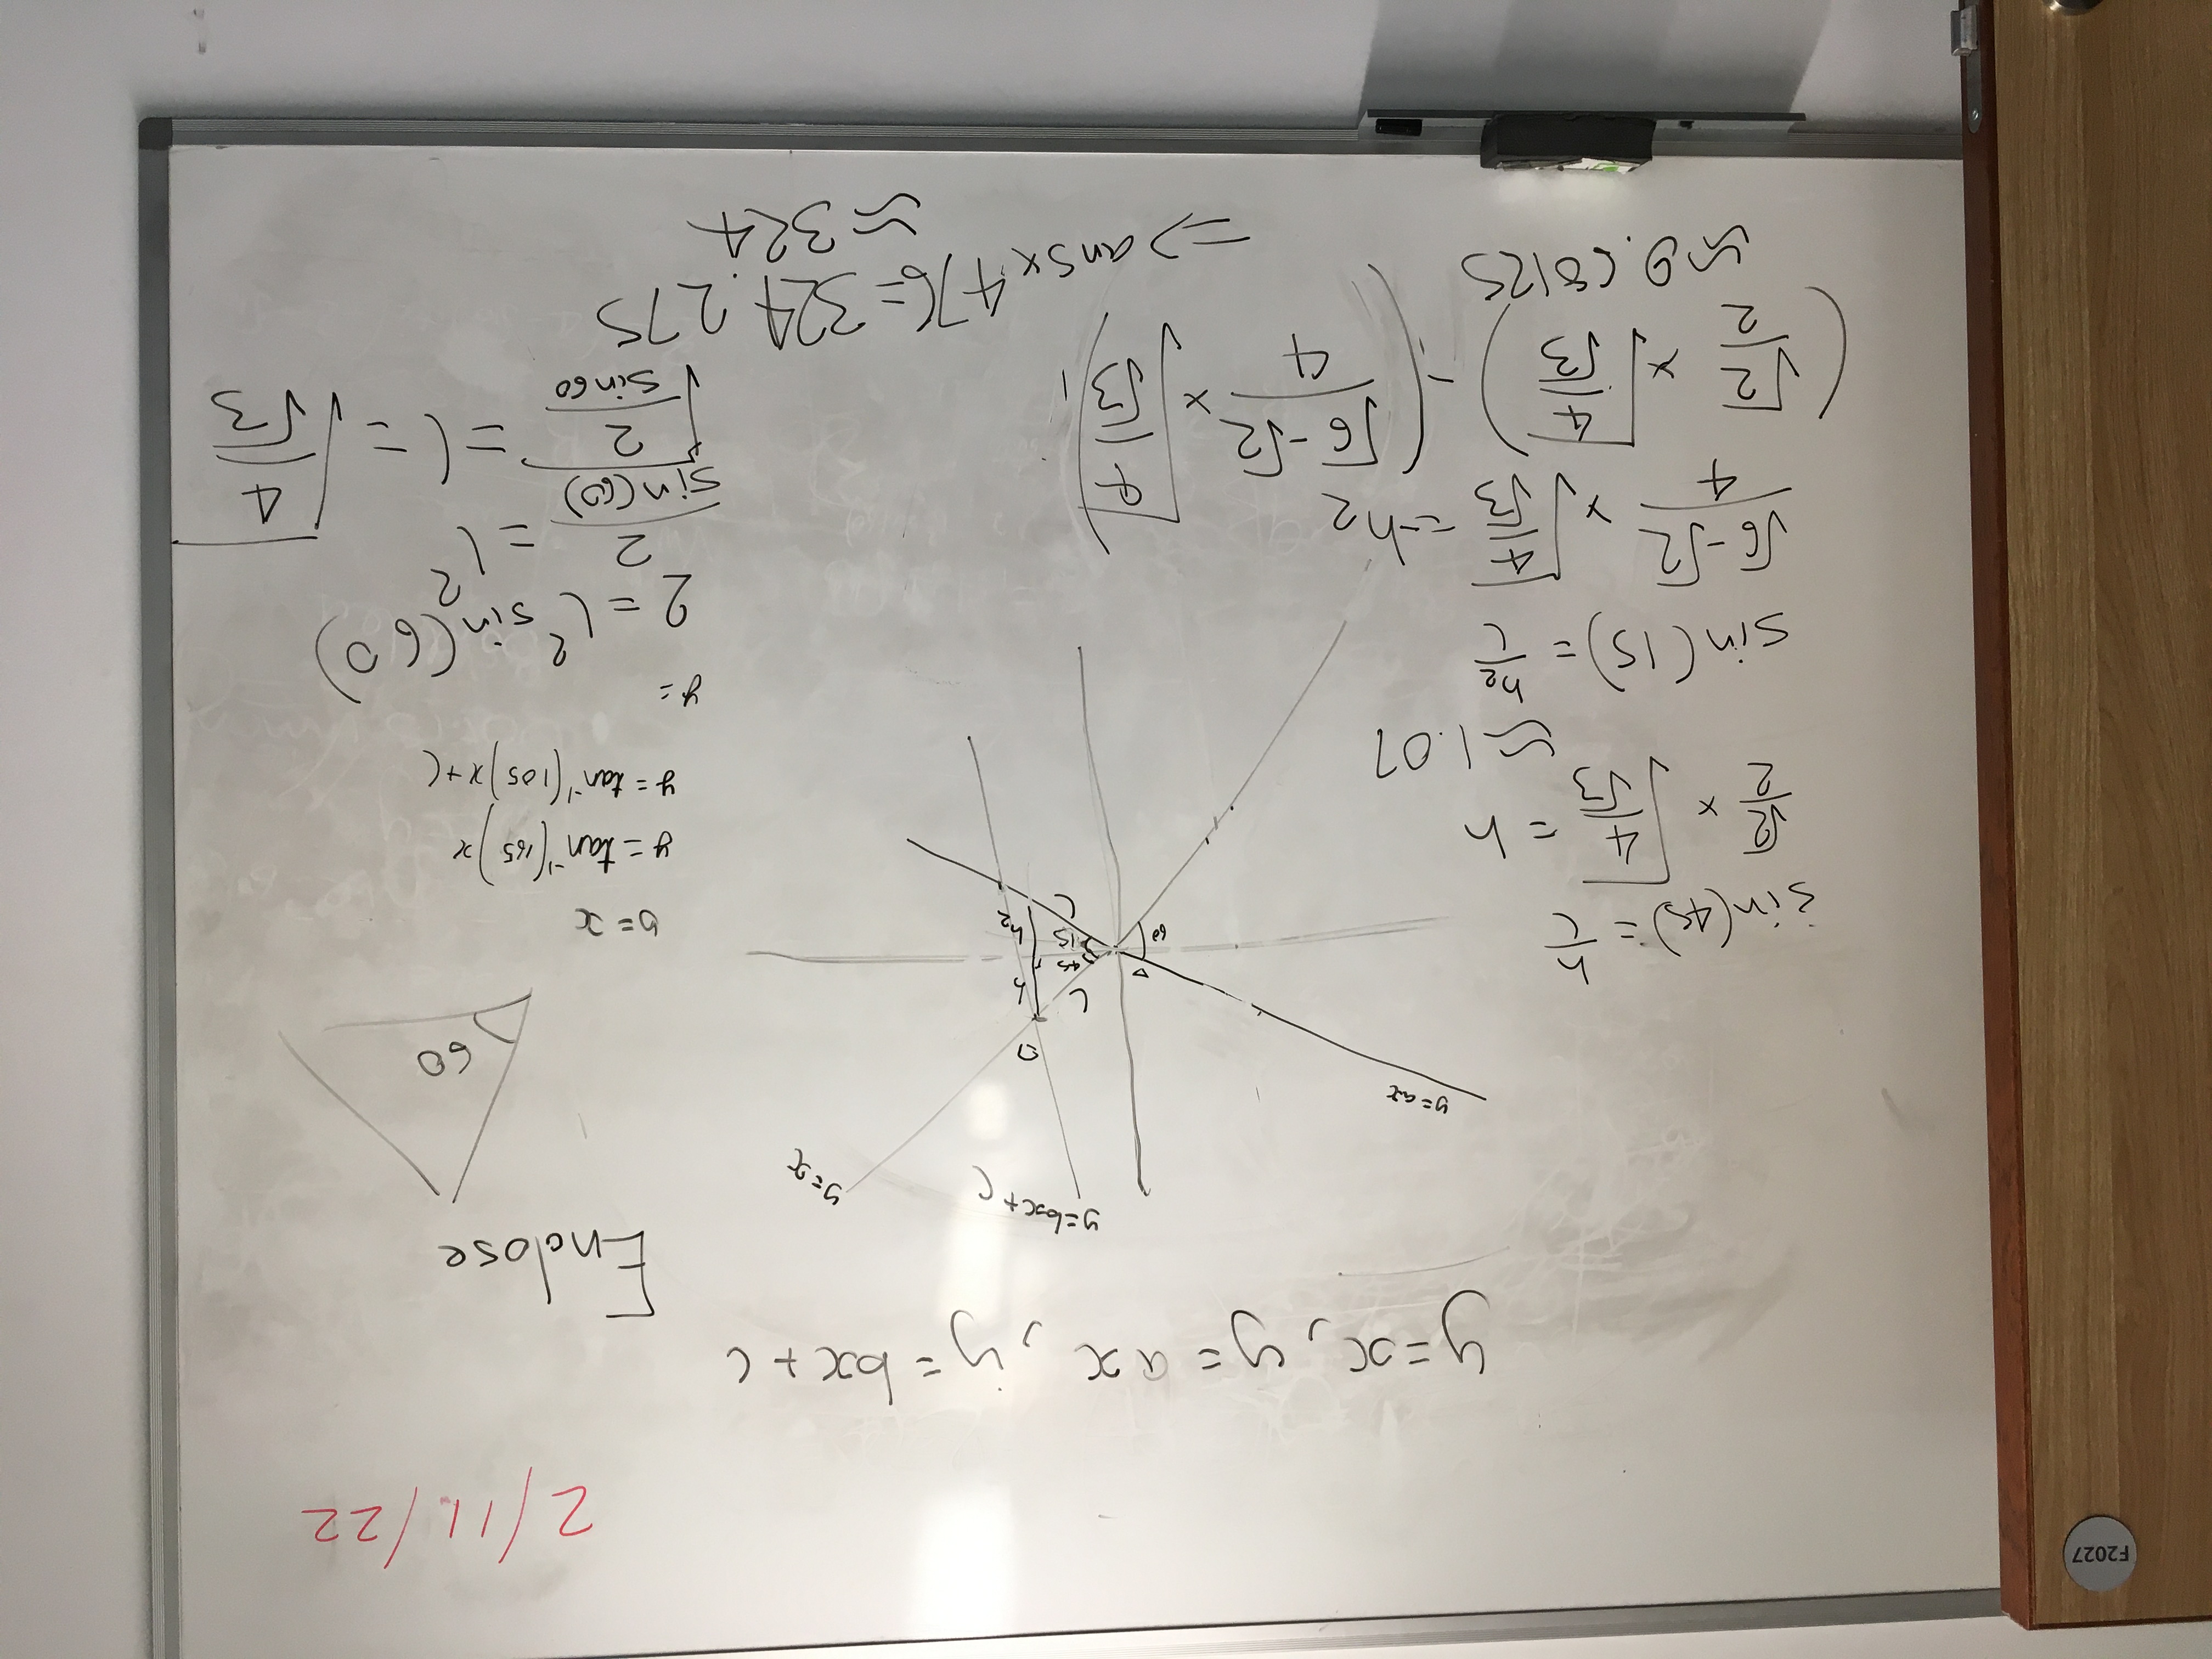 F2027
2/11/22
y=x, y=ax, y=bx+c
Enclose
y=bx+c
y=x
y=ax
60
l
h
45
15
60
h₂
l
sin(45) = h/l
√2/2 × √(4/√3) = h
≈1.07
sin(15) = h₂/l
(√6-√2)/4 × √(4/√3) = h₂
(√2/2 × √(4/√3)) - ((√6-√2)/4 × √(4/√3))
≈0.68125
=> ans×476=324.275
≈324
y=x
y=tan⁻¹(165)x
y=tan⁻¹(105)x+c
y=
2=l² sin(60)
2/sin(60) = l²
√(2/sin60) = l = √(4/√3)